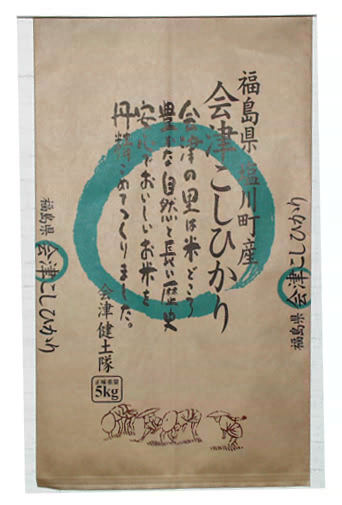 福島県塩川町産
会津こしひかり
会津の里は米どころ
豊かな自然と長い歴史
安心でおいしいお米を
丹精こめてつくりました。
会津健土隊
正味重量
5kg
福島県 会津こしひかり
福島県 会津こしひかり